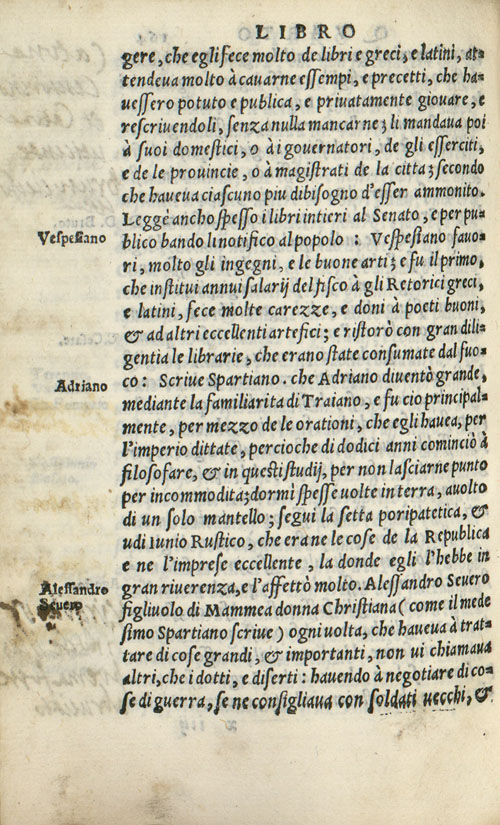 LIBRO
gere, che egli fece molto de libri e greci, e latini, at-
tendeua molto à cauarne essempi, e precetti, che ha-
uessero potuto e publica, e priuatamente giouare, e
rescriuendoli, senza nulla mancarne; li mandaua poi
à suoi domestici, o à i gouernatori, de gli esserciti,
e de le prouincie, o à magistrati de la citta; secondo
che haueua ciascuno piu dibisogno d'esser ammonito.
Legge ancho spesso i libri intieri al Senato, e per pu-
Vespesiano
blico bando li notifico al popolo : Vespesiano fauo-
ri, molto gli ingegni, e le buone arti; e fu il primo,
che institui annui salarij del fisco à gli Retorici greci,
e latini, fece molte carezze, e doni à poeti buoni,
& ad altri eccellenti artefici; e ristorò con gran dili-
gentia le librarie, che erano state consumate dal fuo-
Adriano
co : Scriue Spartiano. che Adriano diuentò grande,
mediante la familiarita di Traiano, e fu cio principal-
mente, per mezzo de le orationi, che egli hauea, per
l'imperio dittate, percioche di dodici anni cominciò à
filosofare, & in questi studij, per non lasciarne punto
per incommodita; dormi spesse uolte in terra, auolto
di un solo mantello; segui la setta poripatetica, &
udi Iunio Rustico, che era ne le cose de la Republica
e ne l'imprese eccellente, la donde egli l'hebbe in
Alessandro
Seuero
gran riuerenza, e l'affettò molto. Alessandro Seuero
figliuolo di Mammea donna Christiana ( come il mede
simo Spartiano scriue ) ogni uolta, che haueua à trat-
tare di cose grandi, & importanti, non ui chiamaua
altri, che i dotti, e diserti : hauendo à negotiare di co-
se di guerra, se ne consigliaua con soldati uecchi, &